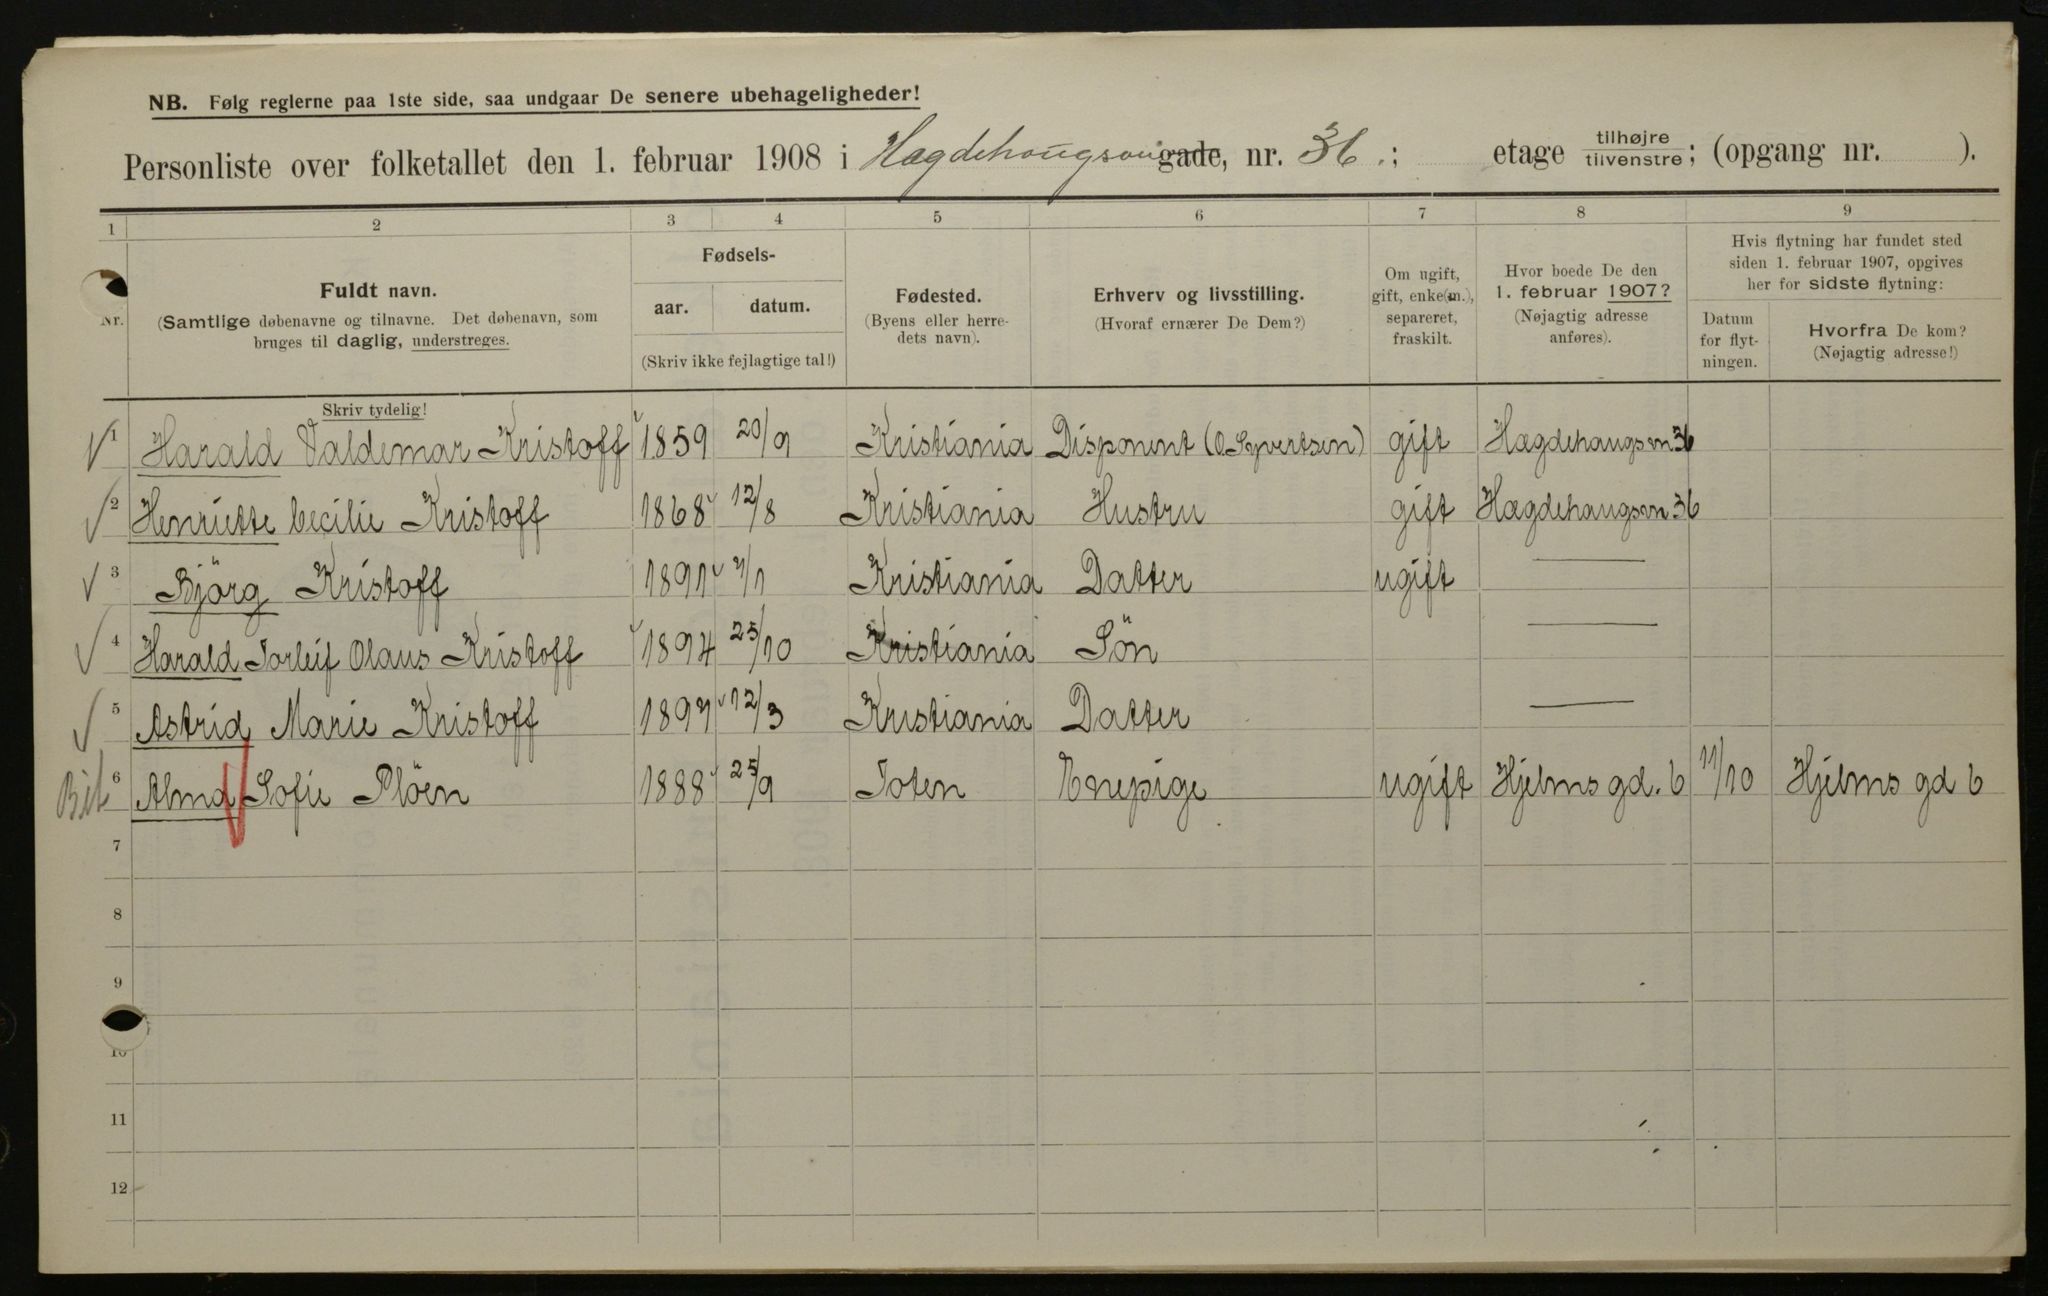 NB. Følg reglerne paa 1ste side, saa undgaar De senere ubehageligheder!
Personliste over folketallet den 1. februar 1908 i Hægdehougsvei gade, nr. 36.; etage tilhøjre tilvenstre; (opgang nr. ).
1 2 3 4 5 6 7 8 9
Nr.
Fuldt navn.
(Samtlige døbenavne og tilnavne. Det døbenavn, som
bruges til daglig, understreges.
Skriv tydelig!
Fødsels-
aar. datum.
(Skriv ikke fejlagtige tal!)
Fødested.
(Byens eller herre-
dets navn).
Erhverv og livsstilling.
(Hvoraf ernærer De Dem?)
Om ugift,
gift, enke(m.),
separeret,
fraskilt.
Hvor boede De den
1. februar 1907?
(Nøjagtig adresse
anføres).
Hvis flytning har fundet sted
siden 1. februar 1907, opgives
her for sidste flytning:
Datum
for flyt-
ningen.
Hvorfra De kom?
(Nøjagtig adresse!)
1 Harald Valdemar Kristoff 1859 20/9 Kristiania Disponent (O. Syvertsen) gift Hægdehaugsvn 36
2 Henriette Cecilie Kristoff 1868 12/8 Kristiania Hustru gift Hægdehaugsvn 36
3 Björg Kristoff 1891 7/1 Kristiania Datter ugift —
4 Harald Torleif Olaus Kristoff 1894 25/10 Kristiania Sön —
5 Astrid Marie Kristoff 1897 12/3 Kristiania Datter —
6 Alma Sofie Plöen 1888 25/9 Toten Enepige ugift Hjelms gd. 6 11/10 Hjelms gd 6
7
8
9
10
11
12